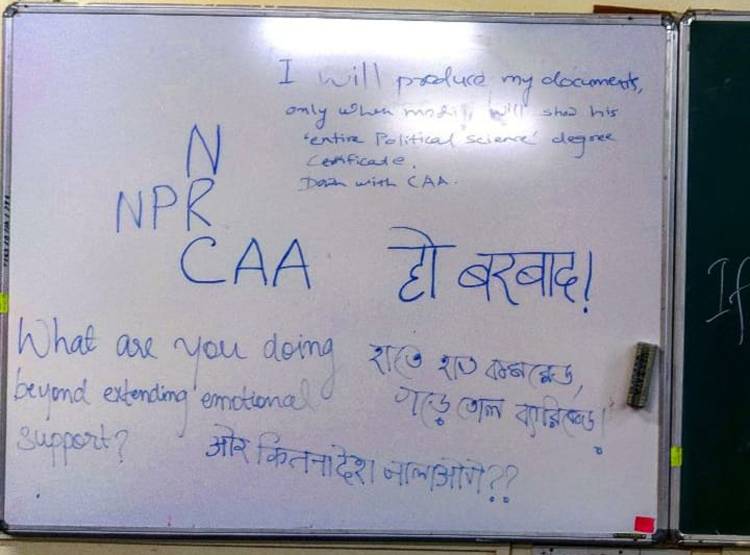 I will produce my documents,
only when modiji will show his
'entire Political Science' degree
Certificate.
Down with CAA.
N
NPR
CAA हो बरबाद!
What are you doing
beyond extending emotional
support?
হাতে হাত কমরেড,
গড়ে তোল ব্যারিকেড!
ओर कितना देश जालाओगे??
If